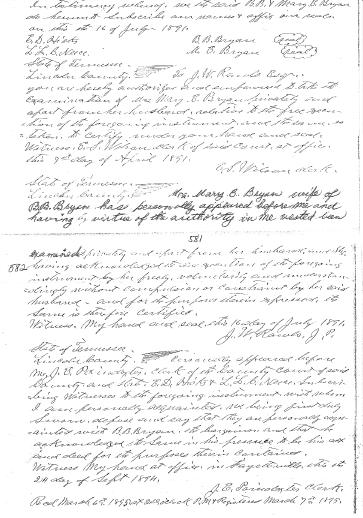 In testimony whereof we the said B.B. & Mary E. Bryan
do hereunto subscribe our names & affix our seals
on this the 16 of July 1891.
E.D. B.B. Bryan (Seal)
L.L. M.E. Bryan (Seal)
State of Tennessee
Lincoln County To J.W. Esqr.
you are hereby authorized and empowered to take the
examination of Mrs Mary E. Bryan privately and
apart from her husband, relative to the free execu
tion of the foregoing instrument and the same so
taken to certify under your hand and seal.
Witness E.S. Wilson clerk of said Court, at office
this 9th day of April 1891.
E.S. Wilson clerk.
State of Tennessee
Lincoln County Mrs. Mary E. Bryan wife of
B.B. Bryan has personally appeared before me and
having by virtue of the authority in me vested been
581
582 examined privately and apart from her husband, and
having acknowledged the execution of the foregoing
instrument by her freely, voluntarily and understan
dingly without compulsion or constraint by her said
husband - and for the purposes therein expressed, the
same is therefore certified.
Witness My hand and seal this 16 day of July 1891.
J.W. J.P.
State of Tennessee
Lincoln County Personally appeared before
My J.E. Poindexter, clerk of the County Court of said
County and state E.D. & L.L. Subscri
bing witnesses to the foregoing instrument with whom
I am personally acquainted, who being first duly
Sworn, depose and say that they are personally acqu
ainted with B.B. Bryan, the bargainor and that he
acknowledged the same in his presence to be his act
and deed for the purposes therein contained.
Witness My hand at office, in Fayetteville this the
24 day of Sept 1894.
J.E. Poindexter Clerk.
Recd March 6th 1895 at o'clock P.M & Registered March 7th 1895.